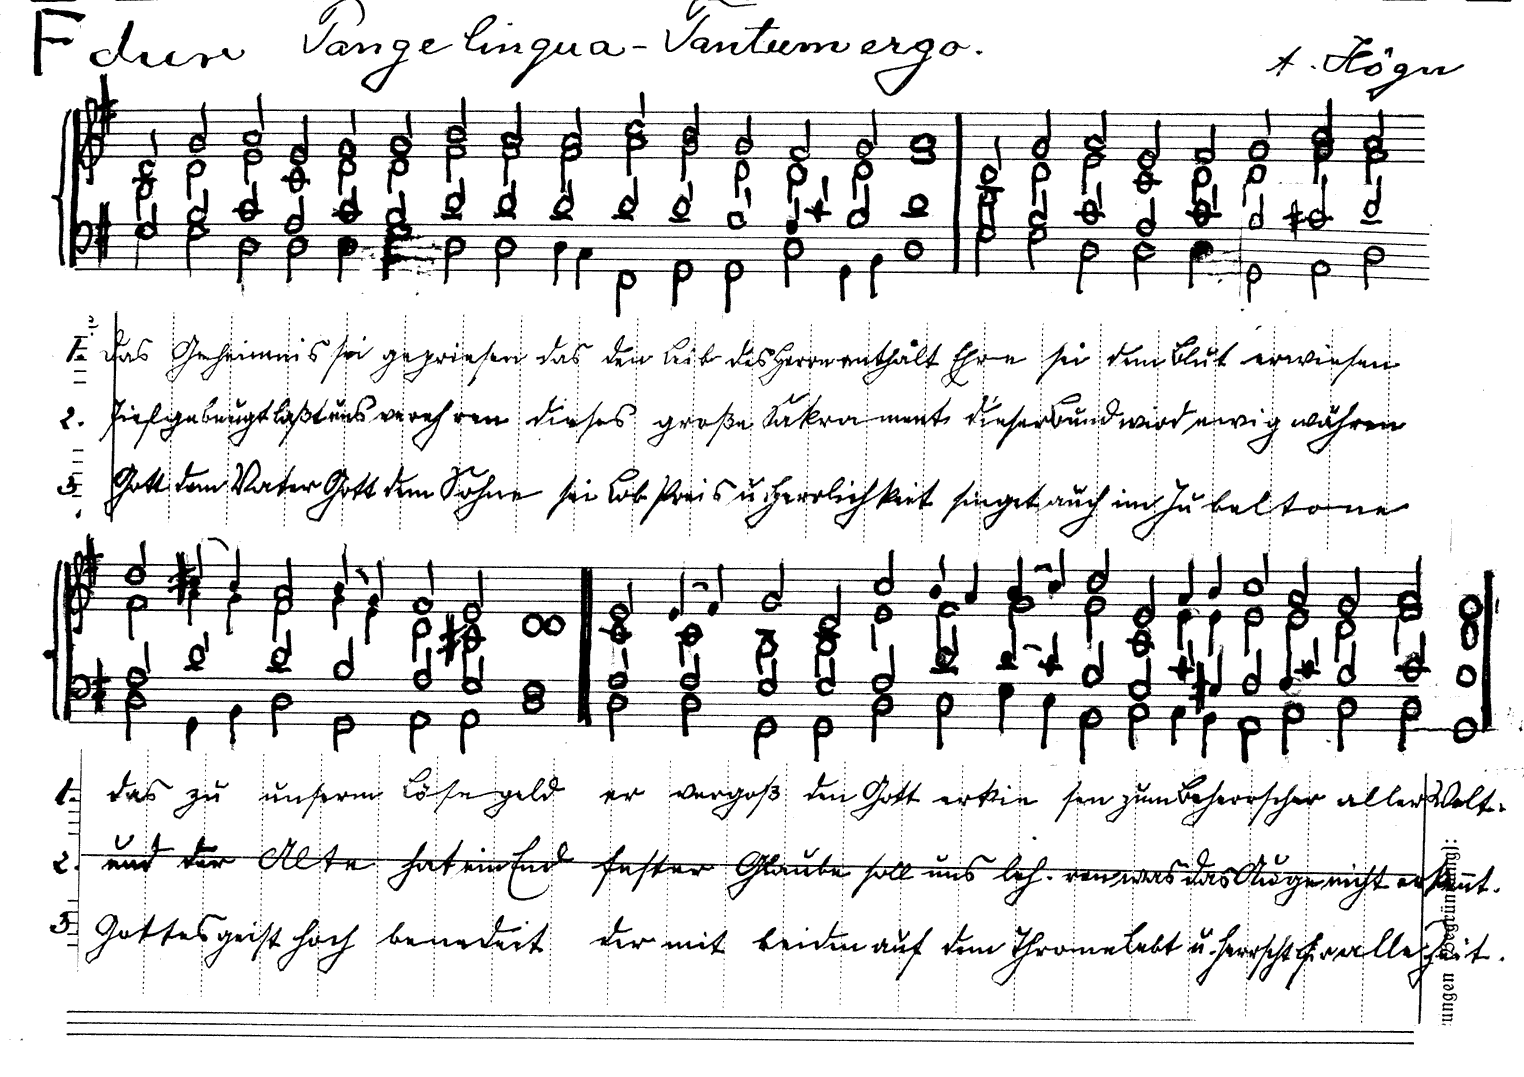 F dur Pange lingua - Tantum ergo.
A. Högn
1. Das Geheimnis sei gepriesen das den Leib des Herrn enthält Ehre sei dem Blut erwiesen
2. Tiefgebeugt laßt uns verehren dieses große Sakrament dieser Bund wird ewig währen
3. Gott dem Vater Gott dem Sohne sei Lob Preis u. Herrlichkeit singet auch im Jubeltone
1. das zu unserm Lösegeld er vergoß den Gott erkiesen zum Beherrscher aller Welt.
2. und der Alte hat ein End fester Glaube soll uns lehren was das Auge nicht erkennt.
3. Gottesgeist hoch benedeit der mit beiden auf dem Throne lebt u. herrscht für alle Zeit.